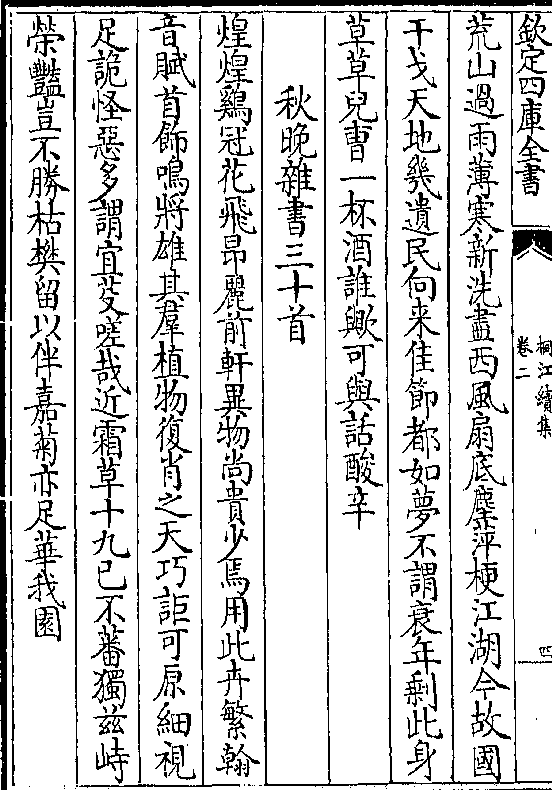 欽定四庫全書
桐江續集
卷二
四
荒山過雨薄寒新洗盡西風扇底塵萍梗江湖今故國
干戈天地幾遺民向来佳節都如夢不謂衰年剩此身
草草兒曹一杯酒誰歟可與話酸辛
秋晚雜書三十首
煌煌鷄冠花飛昂麗前軒異物尚貴少焉用此卉繁翰
音賦首飾鳴將雄其羣植物復肖之天巧詎可原細視
足詭怪惡多謂宜芟嗟哉近霜草十九已不蕃獨兹峙
榮豔豈不勝枯樊留以伴嘉菊亦足華我園